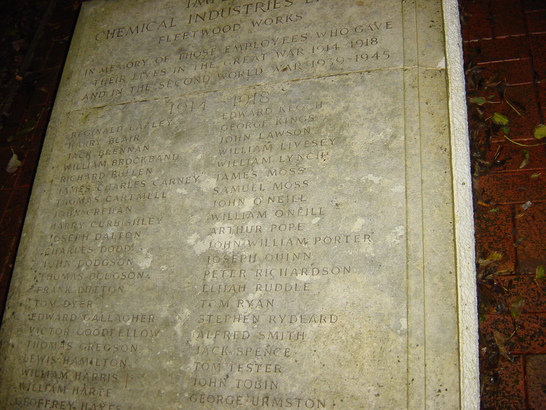 CHEMICAL INDUSTRIES
FLEETWOOD WORKS
IN MEMORY OF THOSE EMPLOYEES WHO GAVE
THEIR LIVES IN THE GREAT WAR 1914 1918
AND IN THE SECOND WORLD WAR 1939-1945
1914 1918
REGINALD
HARRY BLAIR
JACK BRENNAN
WILLIAM BROCKBANK
RICHARD BULLEN
JAMES CHARLES CARNEY
THOMAS CARTMELL
JOHN CREHAN
HARRY CURR AILEY
JOSEPH DALTON
DODD
JOHN DODGSON
THOMAS DODGSON
FRANK DUTTON
TOM DYER
EDWARD GALLAGHER
VICTOR GOODFELLOW
THOMAS GREGSON
LEWIS HAMILTON
WILLIAM HARRIS
WILLIAM HARTE
GEOFFREY HAYES
EDWARD
GEORGE KINGS
JOHN LAWSON
WILLIAM LIVESEY
WILLIAM LYNCH
JAMES MOSS
SAMUEL MOSS
JOHN O'NEILL
WILLIAM ONEILL
ARTHUR POPE
JOHN WILLIAM PORTER
JOSEPH QUINN
PETER RICHARDSON
ELIJAH RUDDLE
TIM RYAN
STEPHEN RYDEARD
ALFRED SMITH
JACK SPENCE
TOM LESTER
JOHN TOBIN
GEORGE URMSTON